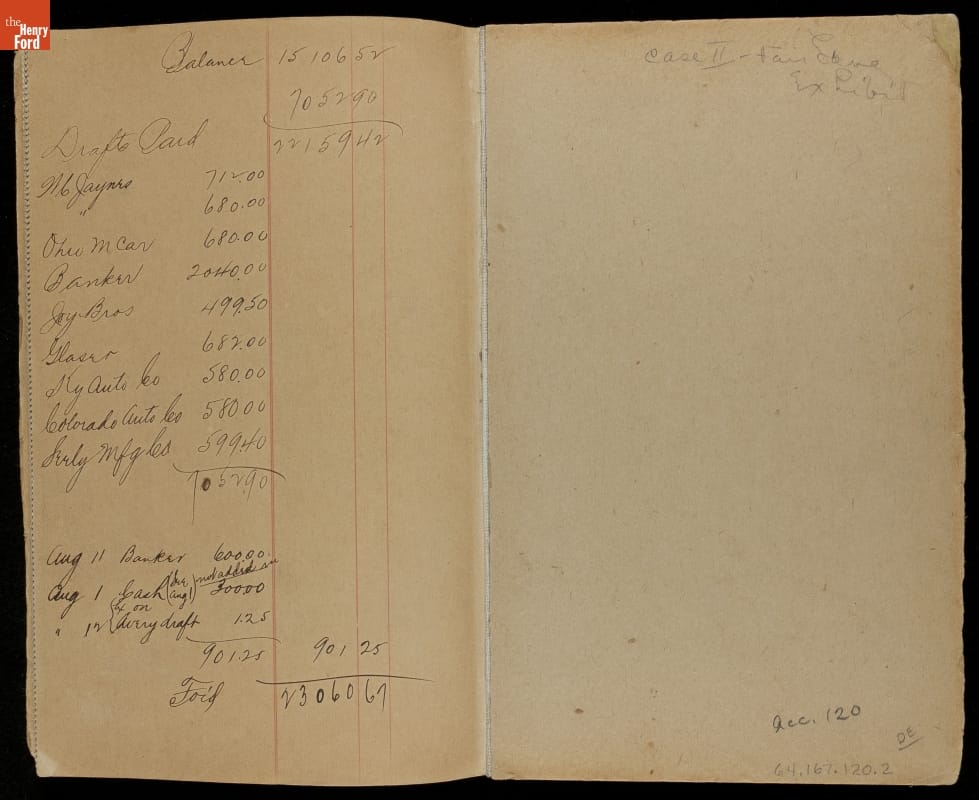 the
Henry
Ford
Balance 15 106 52
7052 90
Drafts Paid 22159 42
Jaynes 712.00
" 680.00
Ohio M Car 680.00
Banker 2040.00
Joy Bros 499.50
Glaser 682.00
Ky Auto Co 580.00
Colorado Auto Co 580 00
Mfg Co 599.40
7052 90
Aug 11 Banker 600.00
Aug 1 Cash (see Aug 1) not added in 300 00
" 12 {Ex on Avery draft 1.25
901.25 901 25
For'd 23060 67
Case II - Fair Lane
Exhibit
Acc. 120
DE
64.167.120.2